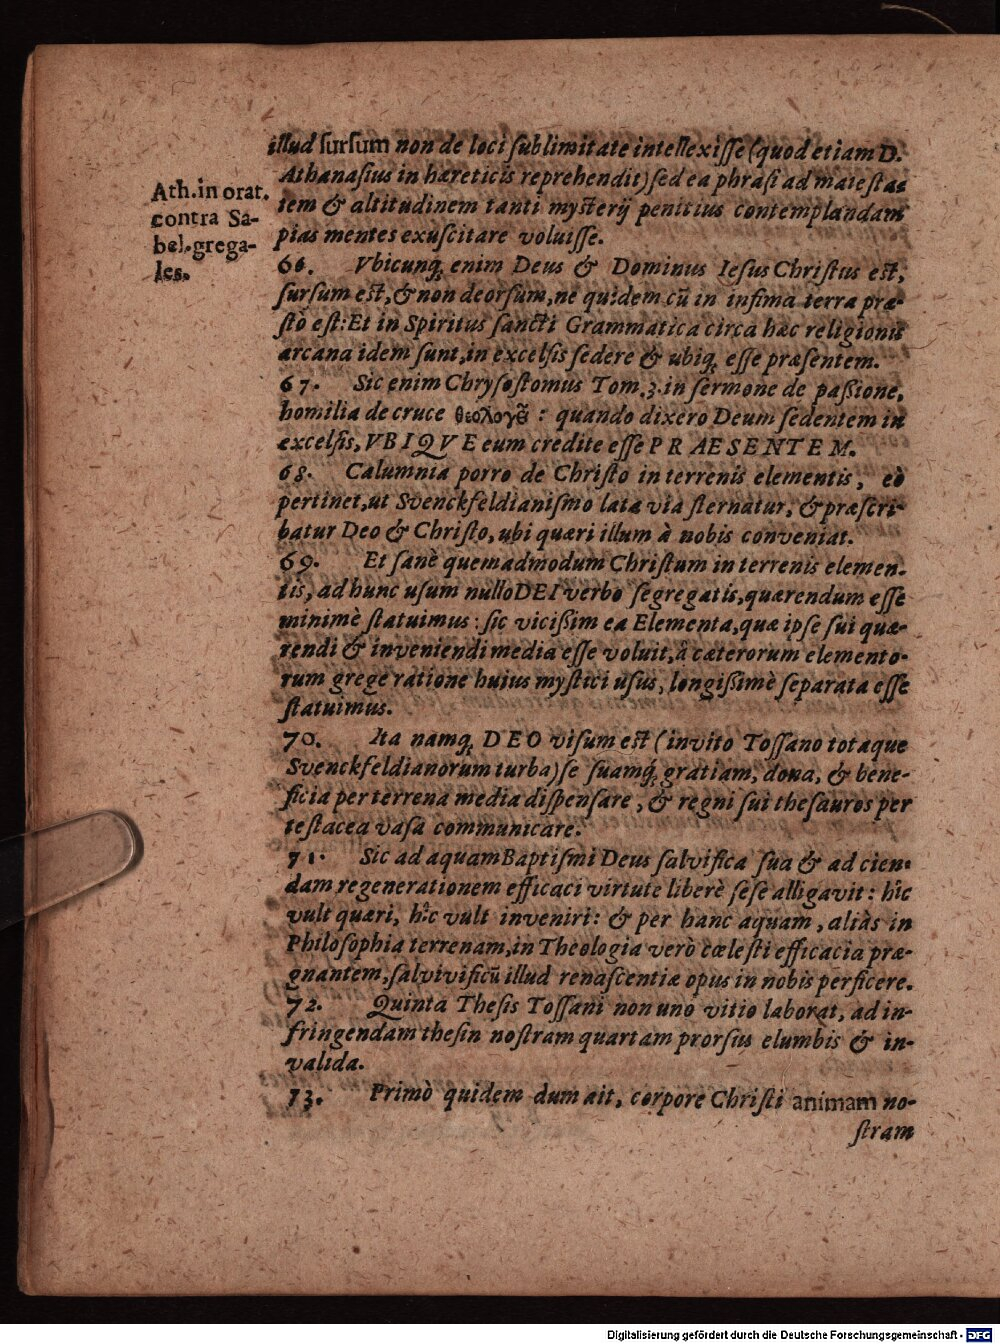 illud sursum non de loci sublimitate intellexisse (quod etiam D.
Athanasius in hæreticis reprehendit) sed ea phrasi ad maiestatem
tem & altitudinem tanti mysterij penitius contemplandam
pias mentes exuscitare voluisse.
Ath. in orat.
contra Sa-
bel. grega-
les.
66. Vbicunq; enim Deus & Dominus Iesus Christus est,
sursum est, & non deorsum, ne quidem cũ in infima terra præ-
stò est: Et in Spiritus sancti Grammatica circa hæc religionis
arcana idem sunt, in excelsis sedere & ubiq; esse præsentem.
67. Sic enim Chrysostomus Tom. 3. in sermone de paßione,
homilia de cruce θεολογεῖ : quando dixero Deum sedentem in
excelsis, VBIQVE eum credite esse PRAESENTEM.
68. Calumnia porro de Christo in terrenis elementis, eò
pertinet, ut Svenckfeldianismo lata via sternatur, & præscri-
batur Deo & Christo, ubi quæri illum à nobis conveniat.
69. Et sanè quemadmodum Christum in terrenis elemen-
tis, ad hunc usum nullo DEI verbo segregatis, quærendum esse
minimè statuimus: sic vicißim ea Elementa, quæ ipse sui quæ-
rendi & inveniendi media esse voluit, à cæterorum elemento-
rum grege ratione huius mystici usus, longißimè separata esse
statuimus.
70. Ita namq; DEO visum est (invito Tossano totaque
Svenckfeldianorum turba) se suamq; gratiam, dona, & bene-
ficia per terrena media dispensare, & regni sui thesauros per
testacea vasa communicare.
71. Sic ad aquam Baptismi Deus salvifica sua & ad cien-
dam regenerationem efficaci virtute liberè sese alligavit: hîc
vult quæri, hîc vult inveniri: & per hanc aquam, aliàs in
Philosophia terrenam, in Theologia verò cœlesti efficacia præ-
gnantem, salvivificũ illud renascentiæ opus in nobis perficere.
72. Quinta Thesis Tossani non uno vitio laborat, ad in-
fringendam thesin nostram quartam prorsus elumbis & in-
valida.
73. Primò quidem dum ait, corpore Christi animam no-
stram
Digitalisierung gefördert durch die Deutsche Forschungsgemeinschaft - DFG